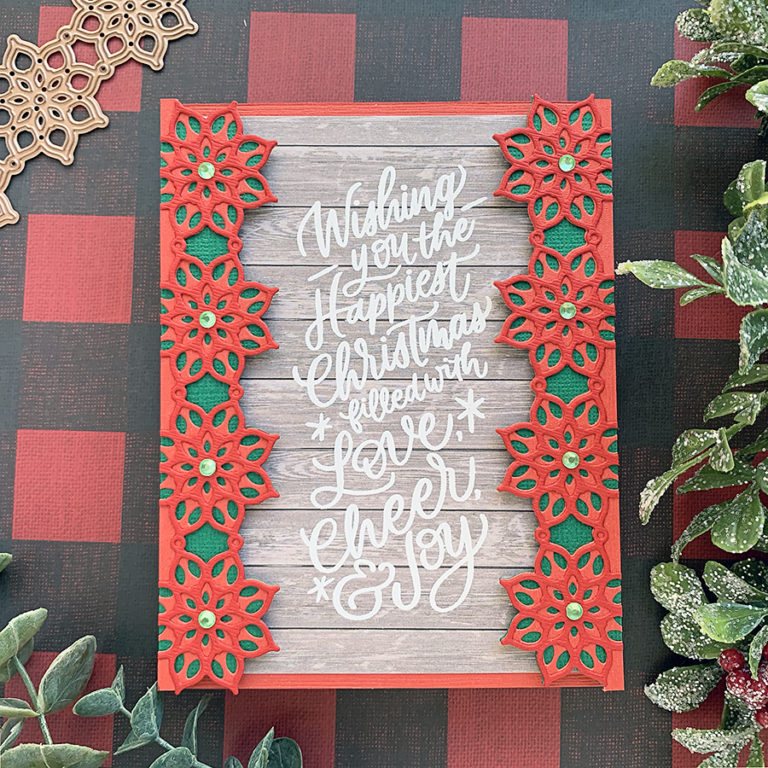 Wishing
you the
Happiest
Christmas
filled with
Love,
Cheer,
& Joy